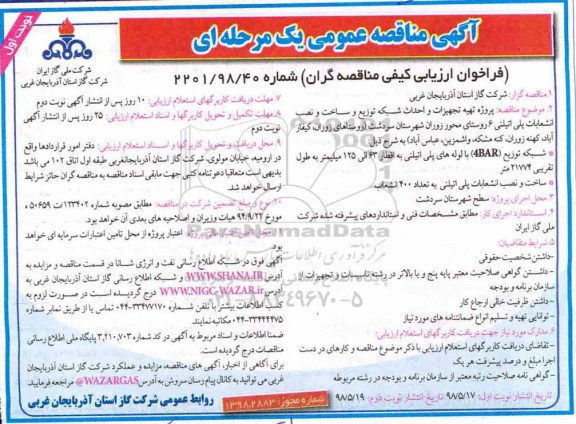 نوبت اول
آگهی مناقصه عمومی یک مرحله ای
شرکت ملی گاز ایران
شرکت گاز استان آذربایجان غربی
(فراخوان ارزیابی کیفی مناقصه گران) شماره ۲۲۰۱/۹۸/۴۰
۱.مناقصه گزار: شرکت گاز استان آذربایجان غربی
۲. موضوع مناقصه: پروژه تهیه تجهیزات و احداث شبکه توزیع و ساخت و نصب
انشعابات پلی اتیلنی ۶ روستای محور زوران شهرستان سردشت (روستاهای زوران، کیفار
آباد، کهنه زوران، کنه مشکه، واشمزین، عباس آباد) به شرح ذیل:
* شبکه توزیع (4BAR) با لوله های پلی اتیلنی به اقطار ۶۳ الی ۱۲۵ میلیمتر به طول
تقریبی ۲۱۷۷۴ متر
* ساخت و نصب انشعابات پلی اتیلنی به تعداد ۴۰۰ انشعاب
۳. محل اجرای پروژه: سطح شهرستان سردشت
۴. استاندارد اجرای کار: مطابق مشخصات فنی و استانداردهای پیشرفته شده شرکت
ملی گاز ایران
۵. شرایط متقاضیان:
-داشتن شخصیت حقوقی
- داشتن گواهی صلاحیت معتبر پایه پنج و یا بالاتر در رشته تاسیسات و تجهیزات از
سازمان برنامه و بودجه
-داشتن ظرفیت خالی ارجاع کار
- توانایی تهیه و تسلیم انواع ضمانتنامه های مورد نیاز
۶. مدارک مورد نیاز جهت دریافت کاربرگهای استعلام ارزیابی:
- تقاضای دریافت کاربرگهای استعلام ارزیابی با ذکر موضوع مناقصه و کارهای در دست
اجرا مبلغ و درصد پیشرفت هر یک
- گواهی نامه صلاحیت رتبه معتبر از سازمان برنامه و بودجه در رشته مربوطه
۷. مهلت دریافت کاربرگهای استعلام ارزیابی: ۱۰ روز پس از انتشار آگهی نوبت دوم
۸. مهلت تکمیل و تحویل کاربرگها و اسناد استعلام ارزیابی: ۲۵ روز پس از انتشار آگهی
نوبت دوم
۹. محل دریافت و تحویل کاربرگها و اسناد استعلام ارزیابی: دفتر امور قراردادها واقع
در ارومیه، خیابان مولوی، شرکت گاز استان آذربایجانغربی طبقه اول اتاق ۱۰۲ می باشد
بدیهی است متعاقبا دعوتنامه کتبی جهت مابقی اسناد مناقصه به مناقصه گران حائز شرایط
ارسال خواهد شد.
۱۰. نوع و مبلغ تضمین شرکت در مناقصه: مطابق مصوبه شماره ۱۲۳۴۰۲/ت ۵۰۶۵۹ ه
مورخ ۹۴/۹/۲۲ هیات وزیران و اصلاحیه های بعدی آن خواهد بود.
اعتبار پروژه از محل تامین اعتبارات سرمایه ای خواهد
بود.
آگهی فوق در شبکه اطلاع رسانی نفت و انرژی شانا در قسمت مناقصه و مزایده به
آدرس WWW.SHANA.IR و شبکه اطلاع رسانی گاز استان آذربایجان غربی به
آدرس WWW.NIGC-WAZAR.ir درج گردیده است در صورت لزوم به
کسب اطلاعات بیشتر با تلفن شماره ۳۳۴۷۷۱۷۰-۰۴۴ تماس یا از طریق نمابر شماره
۳۳۴۴۴۴۷۵-۰۴۴ مکاتبه نمایند.
ضمنا اطلاعات و اسناد مربوط به آگهی در کد شماره ۳,۲۱۰,۷۰۳ پایگاه ملی اطلاع رسانی
مناقصات درج گردیده است.
برای آگاهی از اخبار، آگهی های مناقصه، مزایده و عملکرد شرکت گاز استان آذربایجان
غربی می توانید به کانال پیام رسان سروش به آدرس @WAZARGAS مراجعه فرمایید.
تاریخ انتشار نوبت اول: ۹۸/۵/۱۷ تاریخ انتشار نوبت دوم: ۹۸/۵/۱۹
شماره مجوز: ۱۳۹۸.۲۸۸۳
روابط عمومی شرکت گاز استان آذربایجان غربی